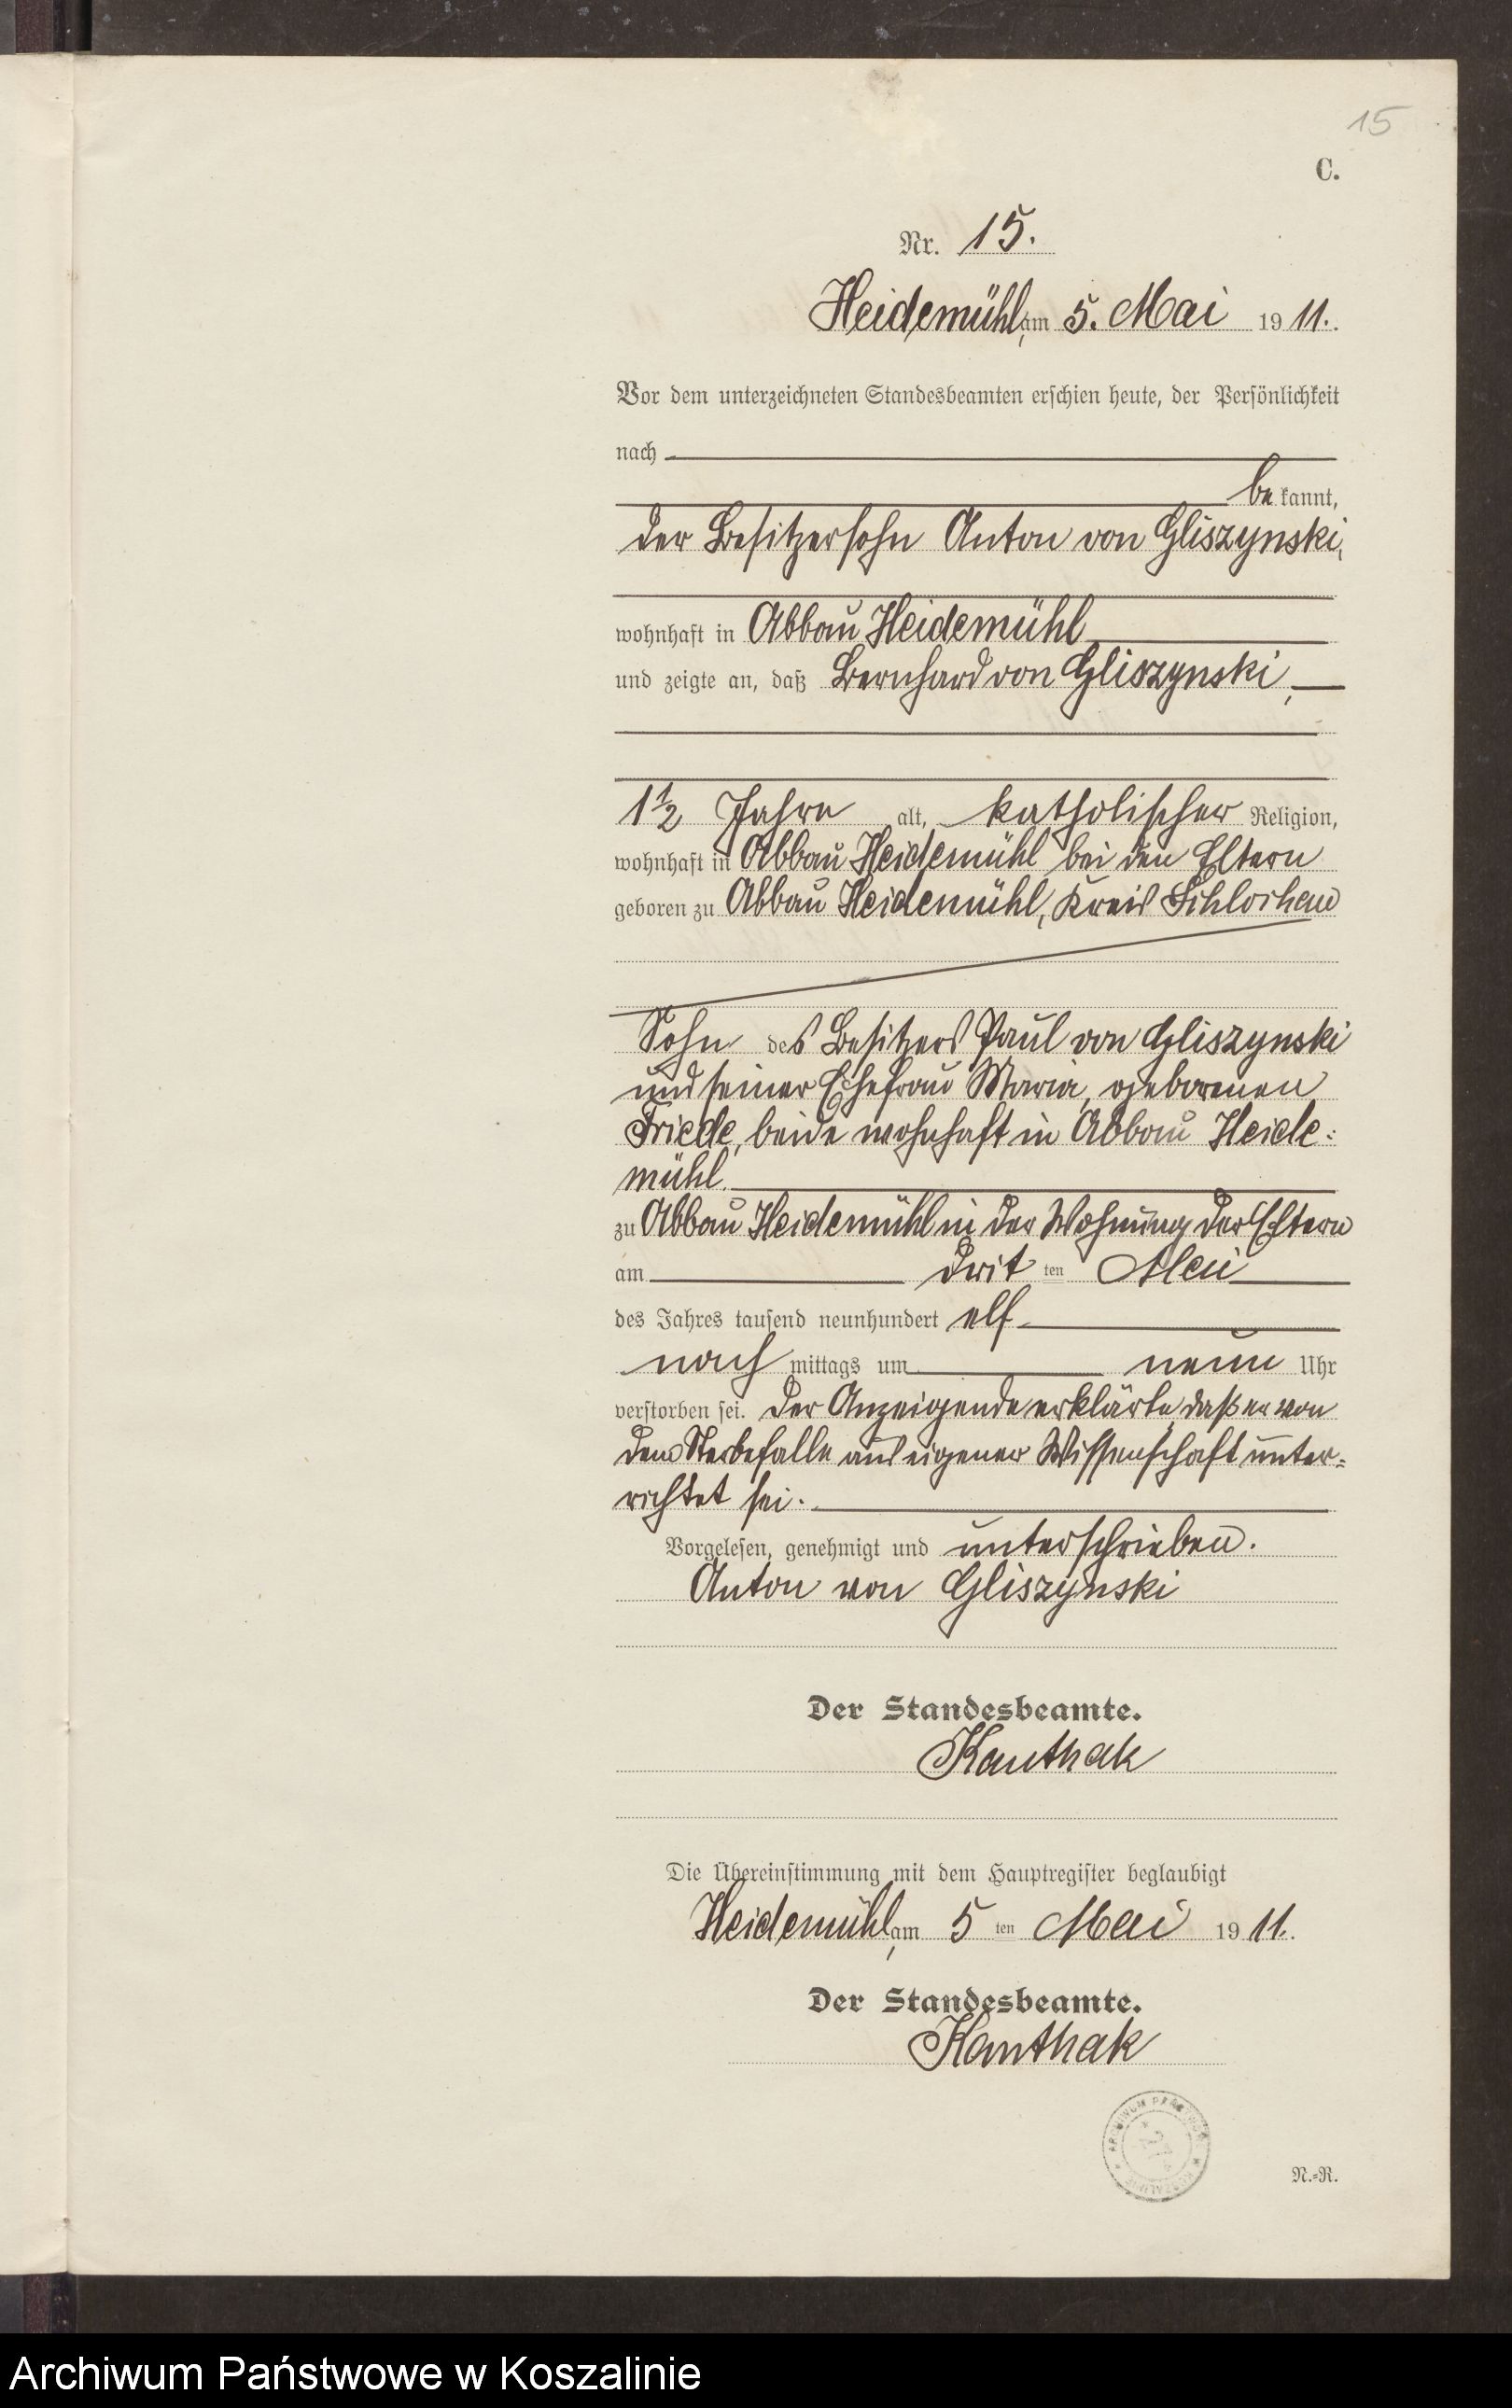 15
C.
Nr. 15.
Heidemühl, am 5. Mai 1911.
Vor dem unterzeichneten Standesbeamten erschien heute, der Persönlichkeit
nach
be kannt,
der Besitzersohn Anton von Gliszynski,
wohnhaft in Abbau Heidemühl
und zeigte an, daß Bernhard von Gliszynski,
1 1/2 Jahre alt, katholischer Religion,
wohnhaft in Abbau Heidemühl bei den Eltern
geboren zu Abbau Heidemühl, Kreis Schlochau
Sohn des Besitzers Paul von Gliszynski
und seiner Ehefrau Maria, geborenen
Friede, beide wohnhaft in Abbau Heide:
mühl.
zu Abbau Heidemühl in der Wohnung der Eltern
am dritten Mai
des Jahres tausend neunhundert elf
nach mittags um neun Uhr
verstorben sei. Der Anzeigende erklärte, daß er von
dem Sterbefalle aus eigener Wissenschaft unter=
richtet sei.
Vorgelesen, genehmigt und unterschrieben.
Anton von Gliszynski
Der Standesbeamte.
Kanthak
Die Übereinstimmung mit dem Hauptregister beglaubigt
Heidemühl, am 5ten Mai 1911.
Der Standesbeamte.
Kanthak
ARCHIWUM PAŃSTWOWE KOSZALINIE
N.=R.
Archiwum Państwowe w Koszalinie